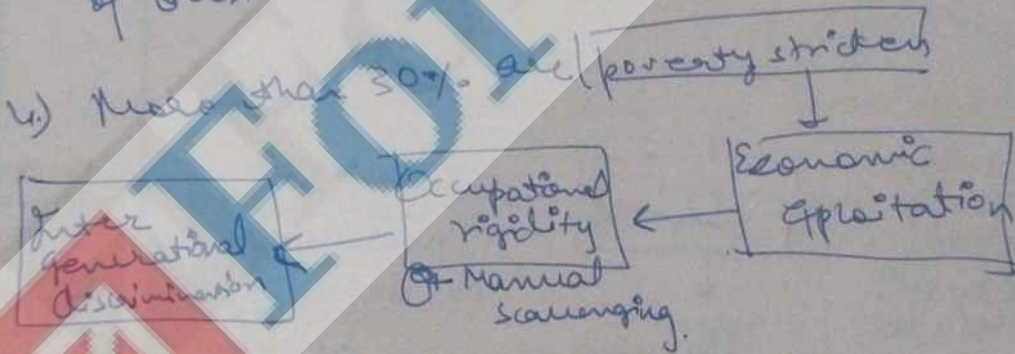 of
4.) More than 30% are poverty stricken
Economic
Exploitation
Occupational
rigidity
Manual
scavenging.
Inter
generational
discrimination
FO